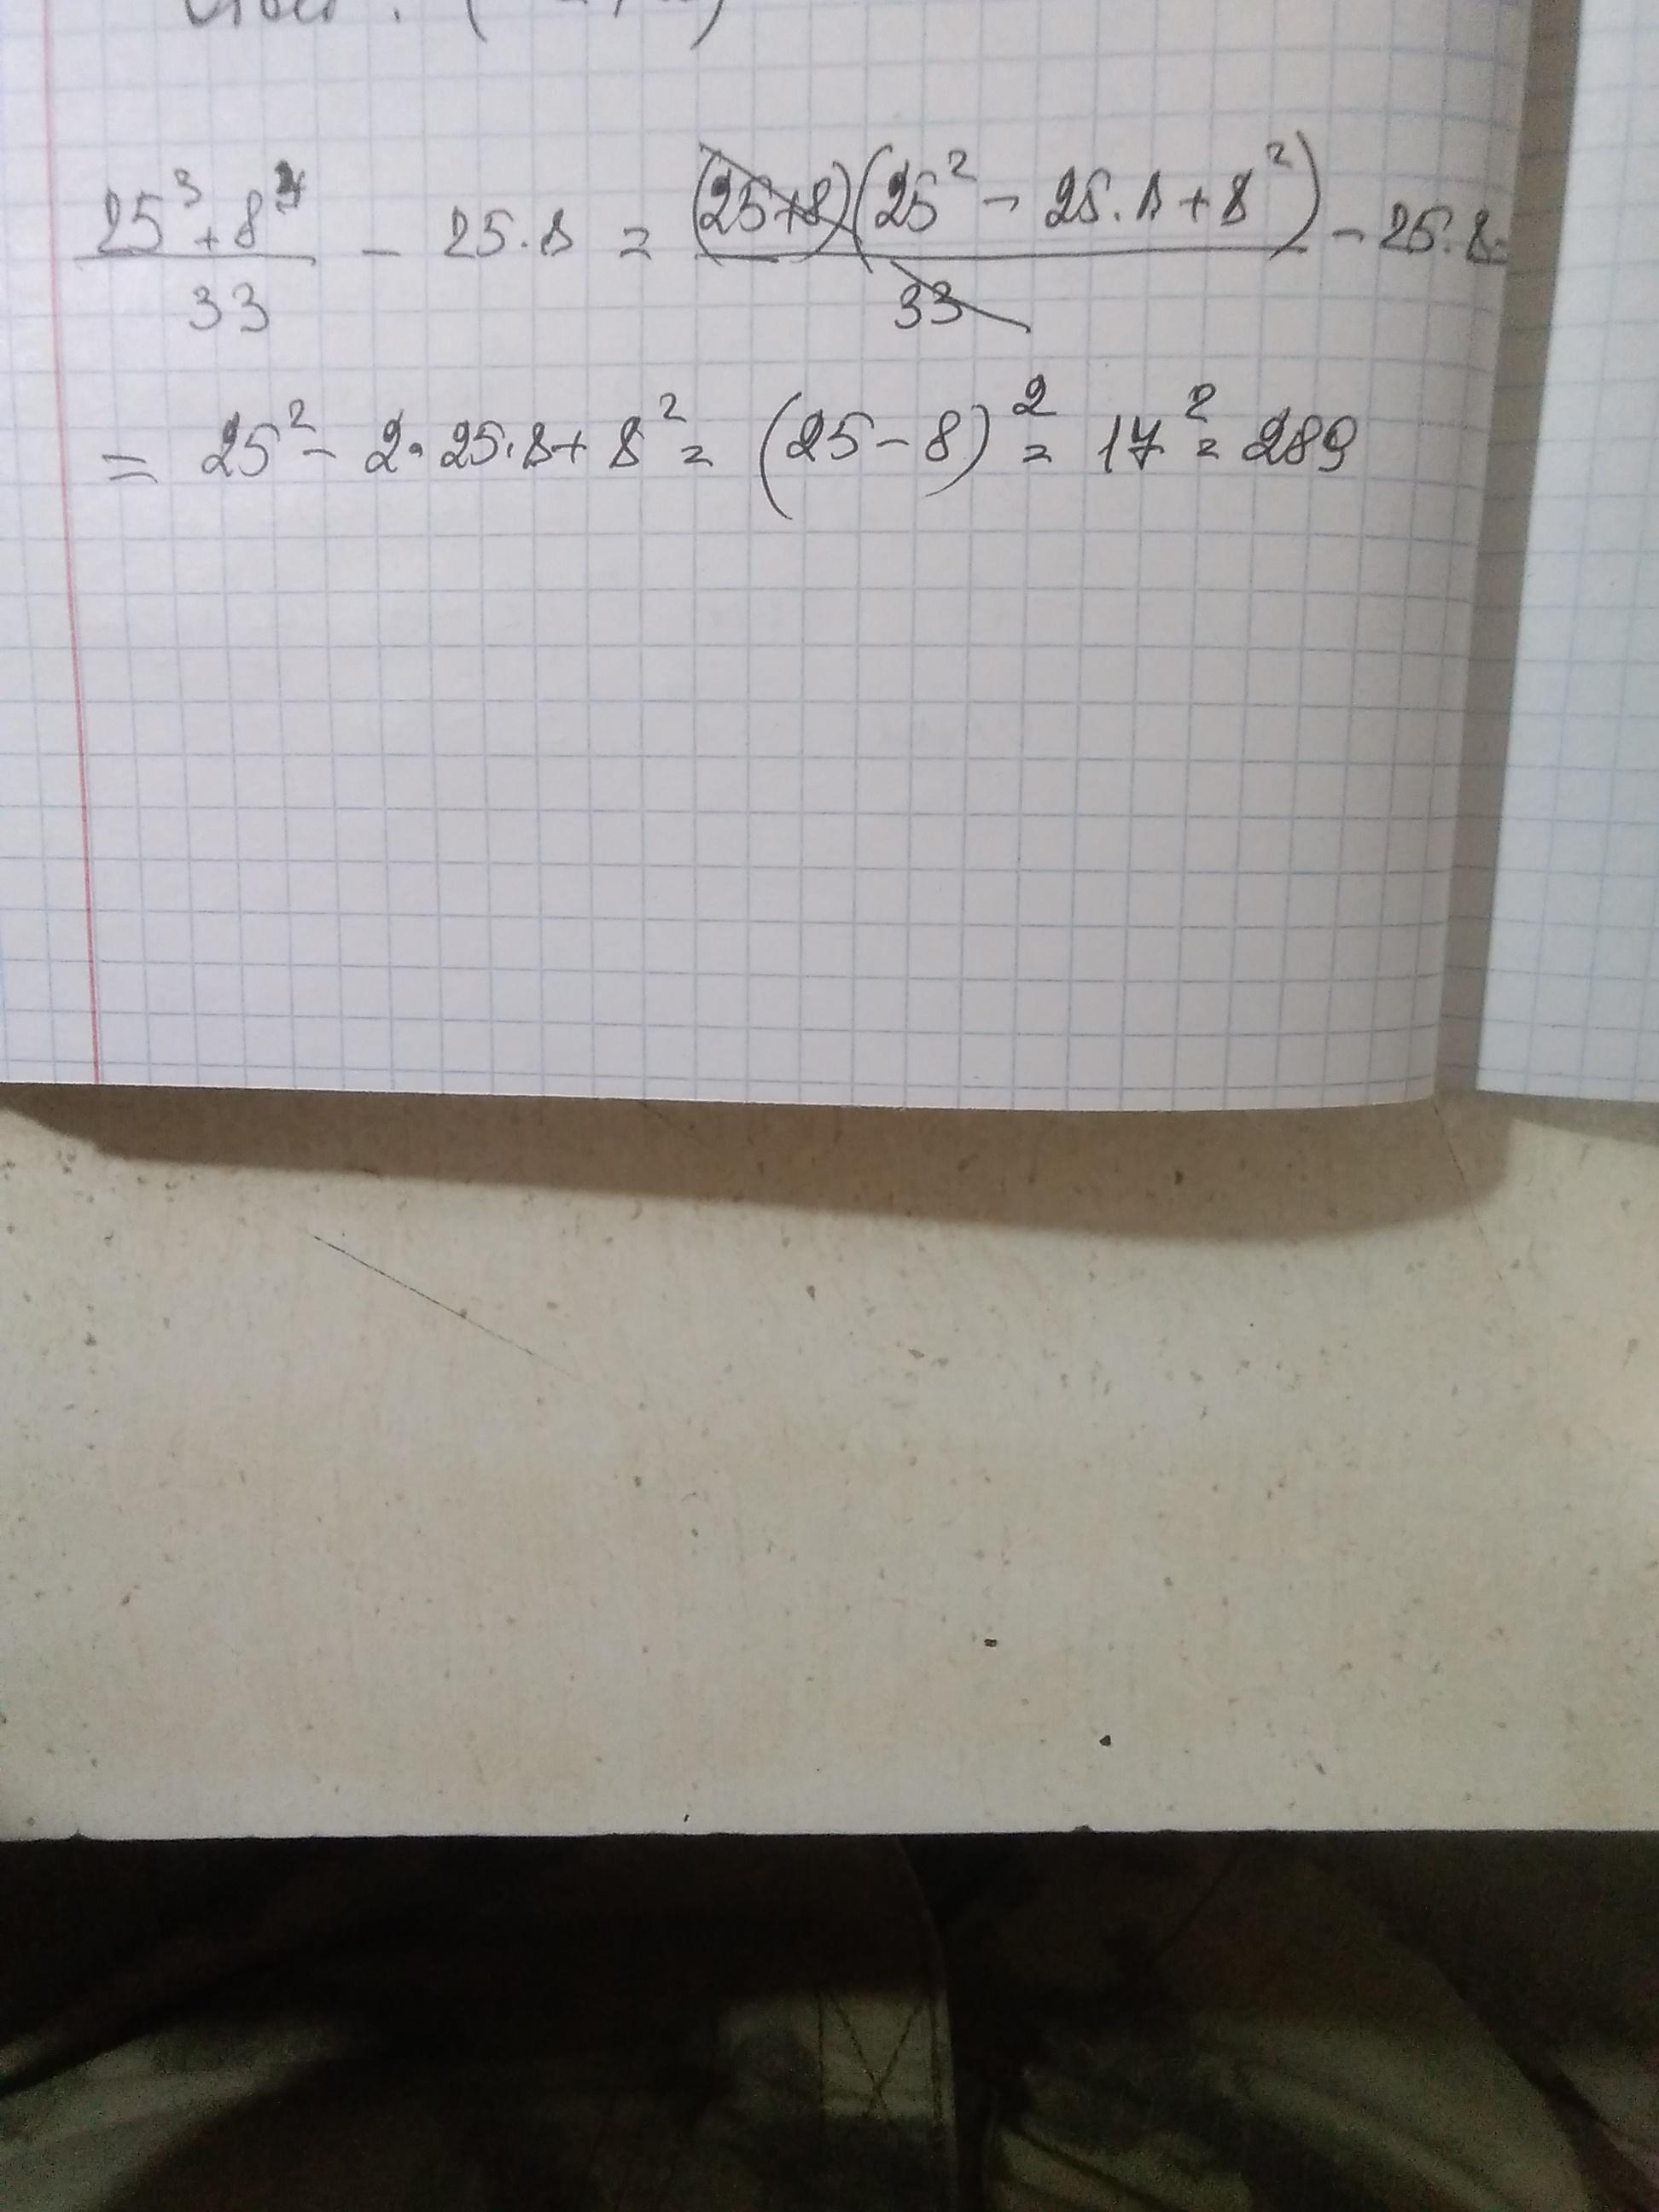 25³ + 8³ / 33 - 25·8 = (25+8)(25² - 25·8 + 8²) / 33 - 25·8 =
= 25² - 2·25·8 + 8² = (25-8)² = 17² = 289